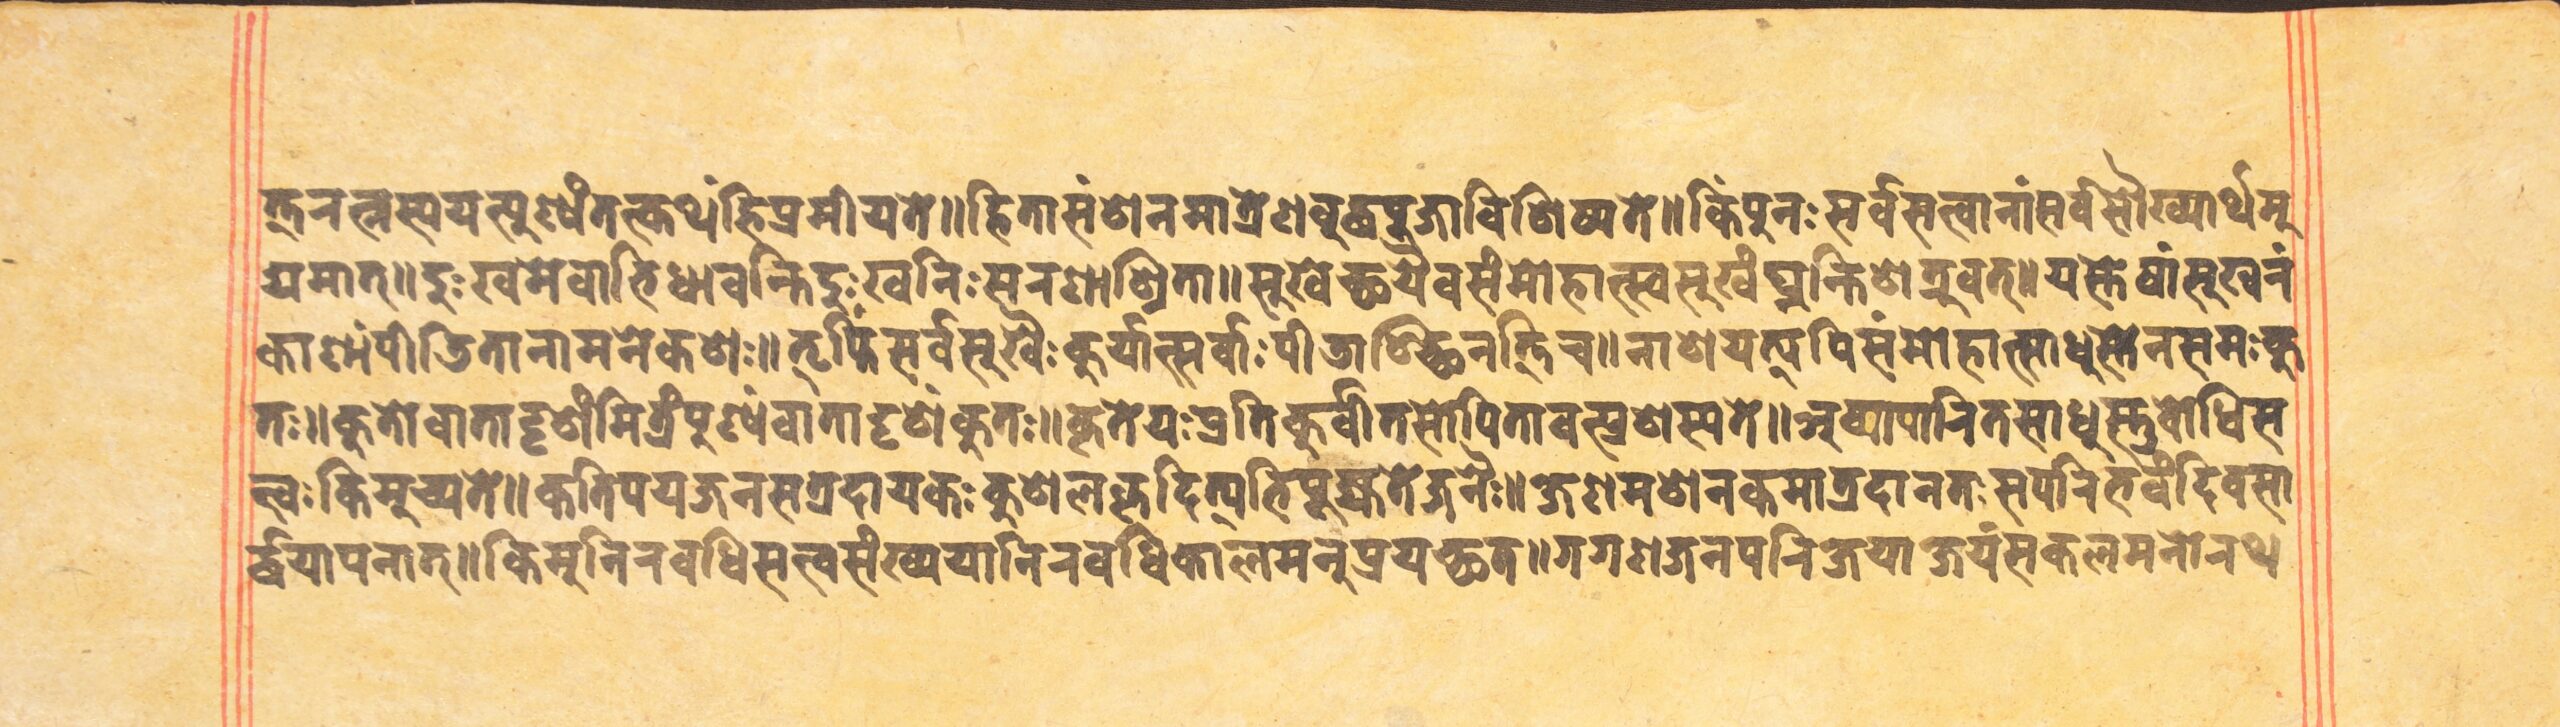 त्तरत्नस्य यत्पुण्यं तत्कथं हि प्रमीयते॥ हिताशंशनमात्रेण बुद्धपूजा विशिष्यते॥ किं पुनः सर्वसत्त्वानां सर्वसौख्यार्थमु
द्यमात्॥ दुःखमेवाभिधावन्ति दुःखनिःसरणाशया॥ सुखेच्छयैव संमोहात्स्वसुखं घ्नन्ति शत्रुवत्॥ यस्तेषां सुखरं
काणां पीडितानामनेकशः॥ तृप्तिं सर्वसुखैः कुर्यात्सर्वाः पीडाश्छिनत्ति च॥ नाशयत्यपि संमोहात्साधुस्तेन समः कु
तः॥ कुतो वा तादृशं मित्रं पुण्यं वा तादृशं कुतः॥ कृते यः प्रतिकुर्वीत सोपि तावत्प्रशस्यते॥ अव्यापारितसाधुस्तु बोधिस
त्त्वः किमुच्यते॥ कतिपयजनसत्रदायकः कुशलकृदित्यभिपूज्यते जनैः॥ क्षणमशनकमात्रदानतः सपरिभवं दिवसा
र्द्धयापनात्॥ किमु निरवधिसत्त्वसंख्यया निरवधिकालमनुप्रयच्छत॥ गगणजनपरिक्षयाक्षयं सकलमनोरथ